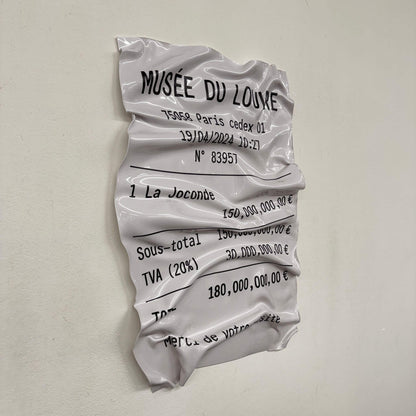 MUSÉE DU LOUVRE
75058 Paris cedex 01
19/04/2024 10:27
N° 83957
1 La Joconde
150,000,000.00 €
Sous-total 150,000,000.00 €
TVA (20%) 30,000,000.00 €
180,000,000.00 €
Merci de votre